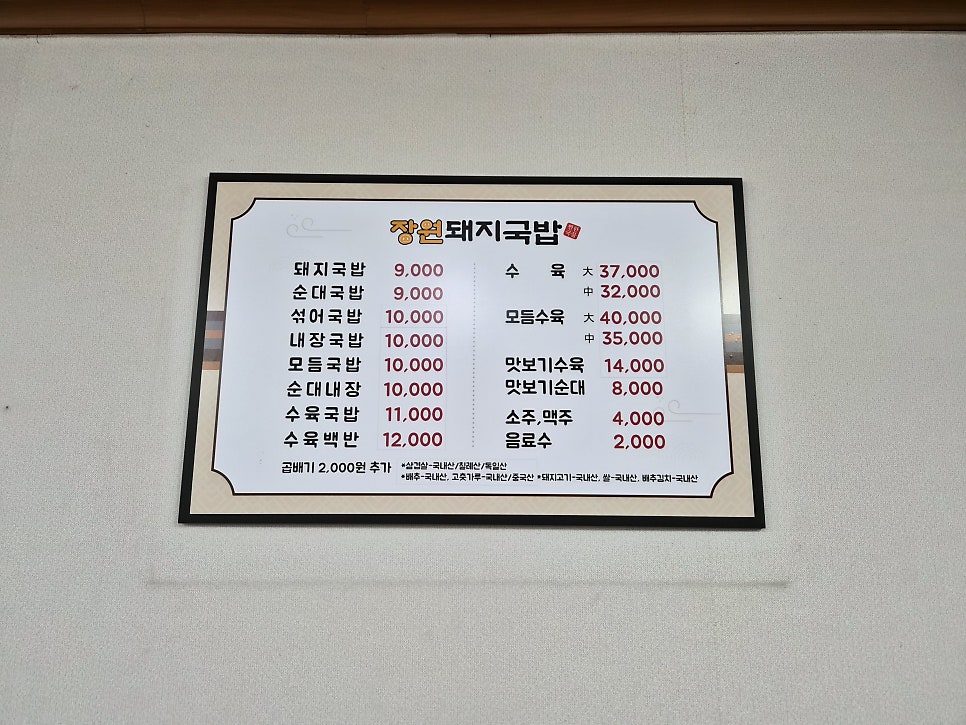 장원돼지국밥
돼지국밥 9,000
순대국밥 9,000
섞어국밥 10,000
내장국밥 10,000
모듬국밥 10,000
순대내장 10,000
수육국밥 11,000
수육백반 12,000
곱배기 2,000원 추가
수 육 大 37,000
中 32,000
모듬수육 大 40,000
中 35,000
맛보기수육 14,000
맛보기순대 8,000
소주,맥주 4,000
음료수 2,000
*삼겹살-국내산/칠레산/독일산
*배추-국내산, 고춧가루-국내산/중국산 *돼지고기-국내산, 쌀-국내산, 배추김치-국내산